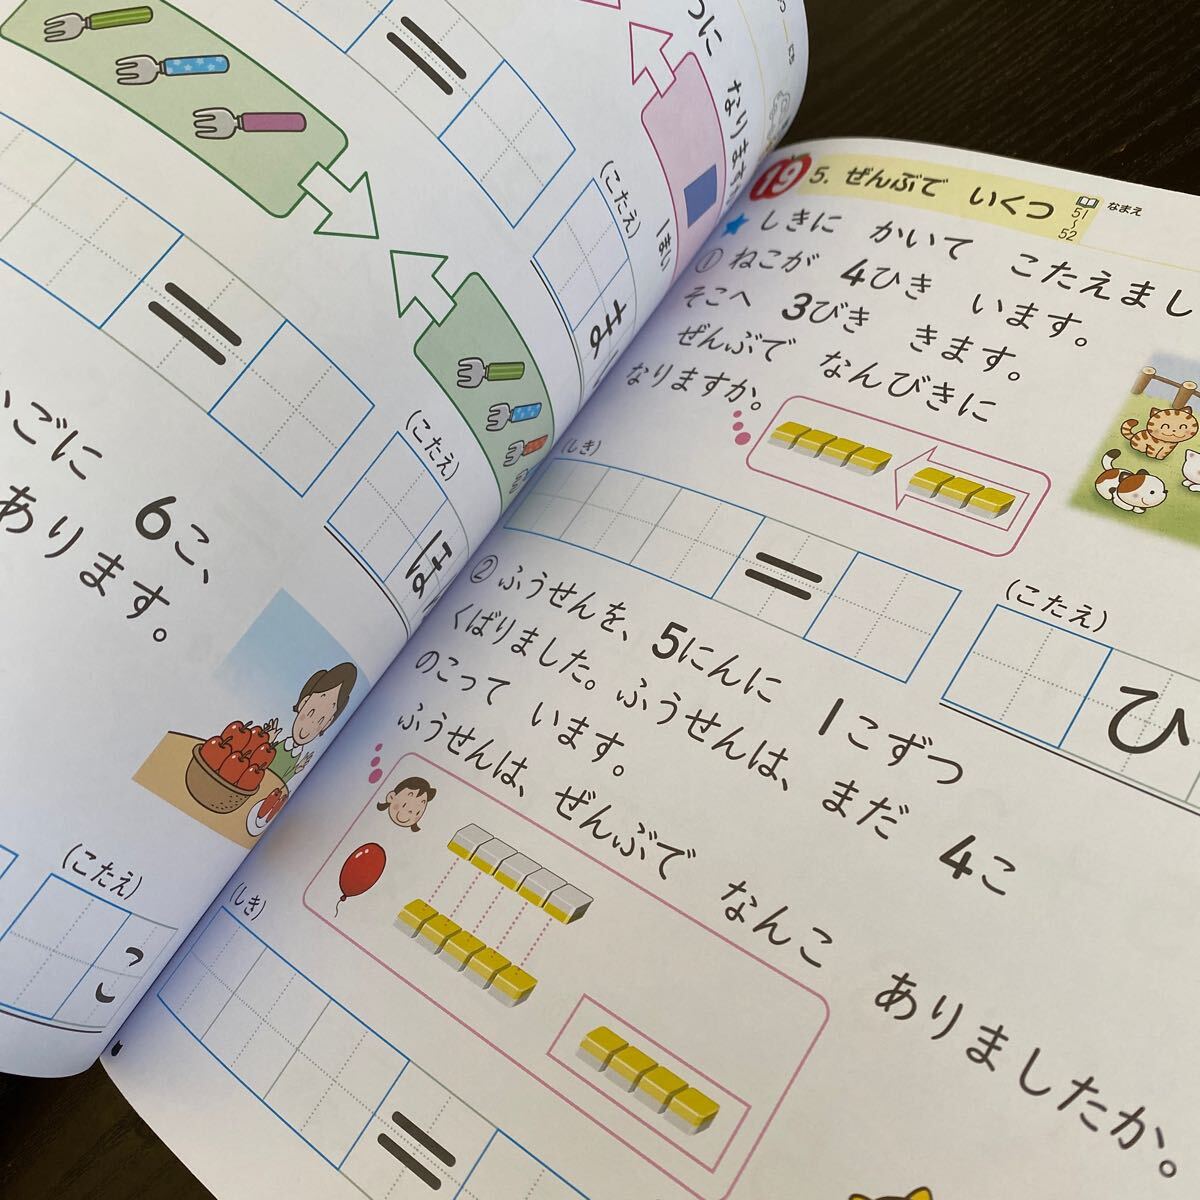 つに
なります
1まい
=
(こたえ)
ま
=
(こたえ)
ほ
かごに 6こ、
あります。
(こたえ)
こ
19 5. ぜんぶで いくつ
51
〜
52
なまえ
★ しきに かいて こたえまし
① ねこが 4ひき います。
そこへ 3びき きます。
ぜんぶで なんびきに
なりますか。
(しき)
=
(こたえ)
ひ
② ふうせんを、5にんに 1こずつ
くばりました。ふうせんは、まだ 4こ
のこって います。
ふうせんは、ぜんぶで なんこ ありましたか。
(しき)
=